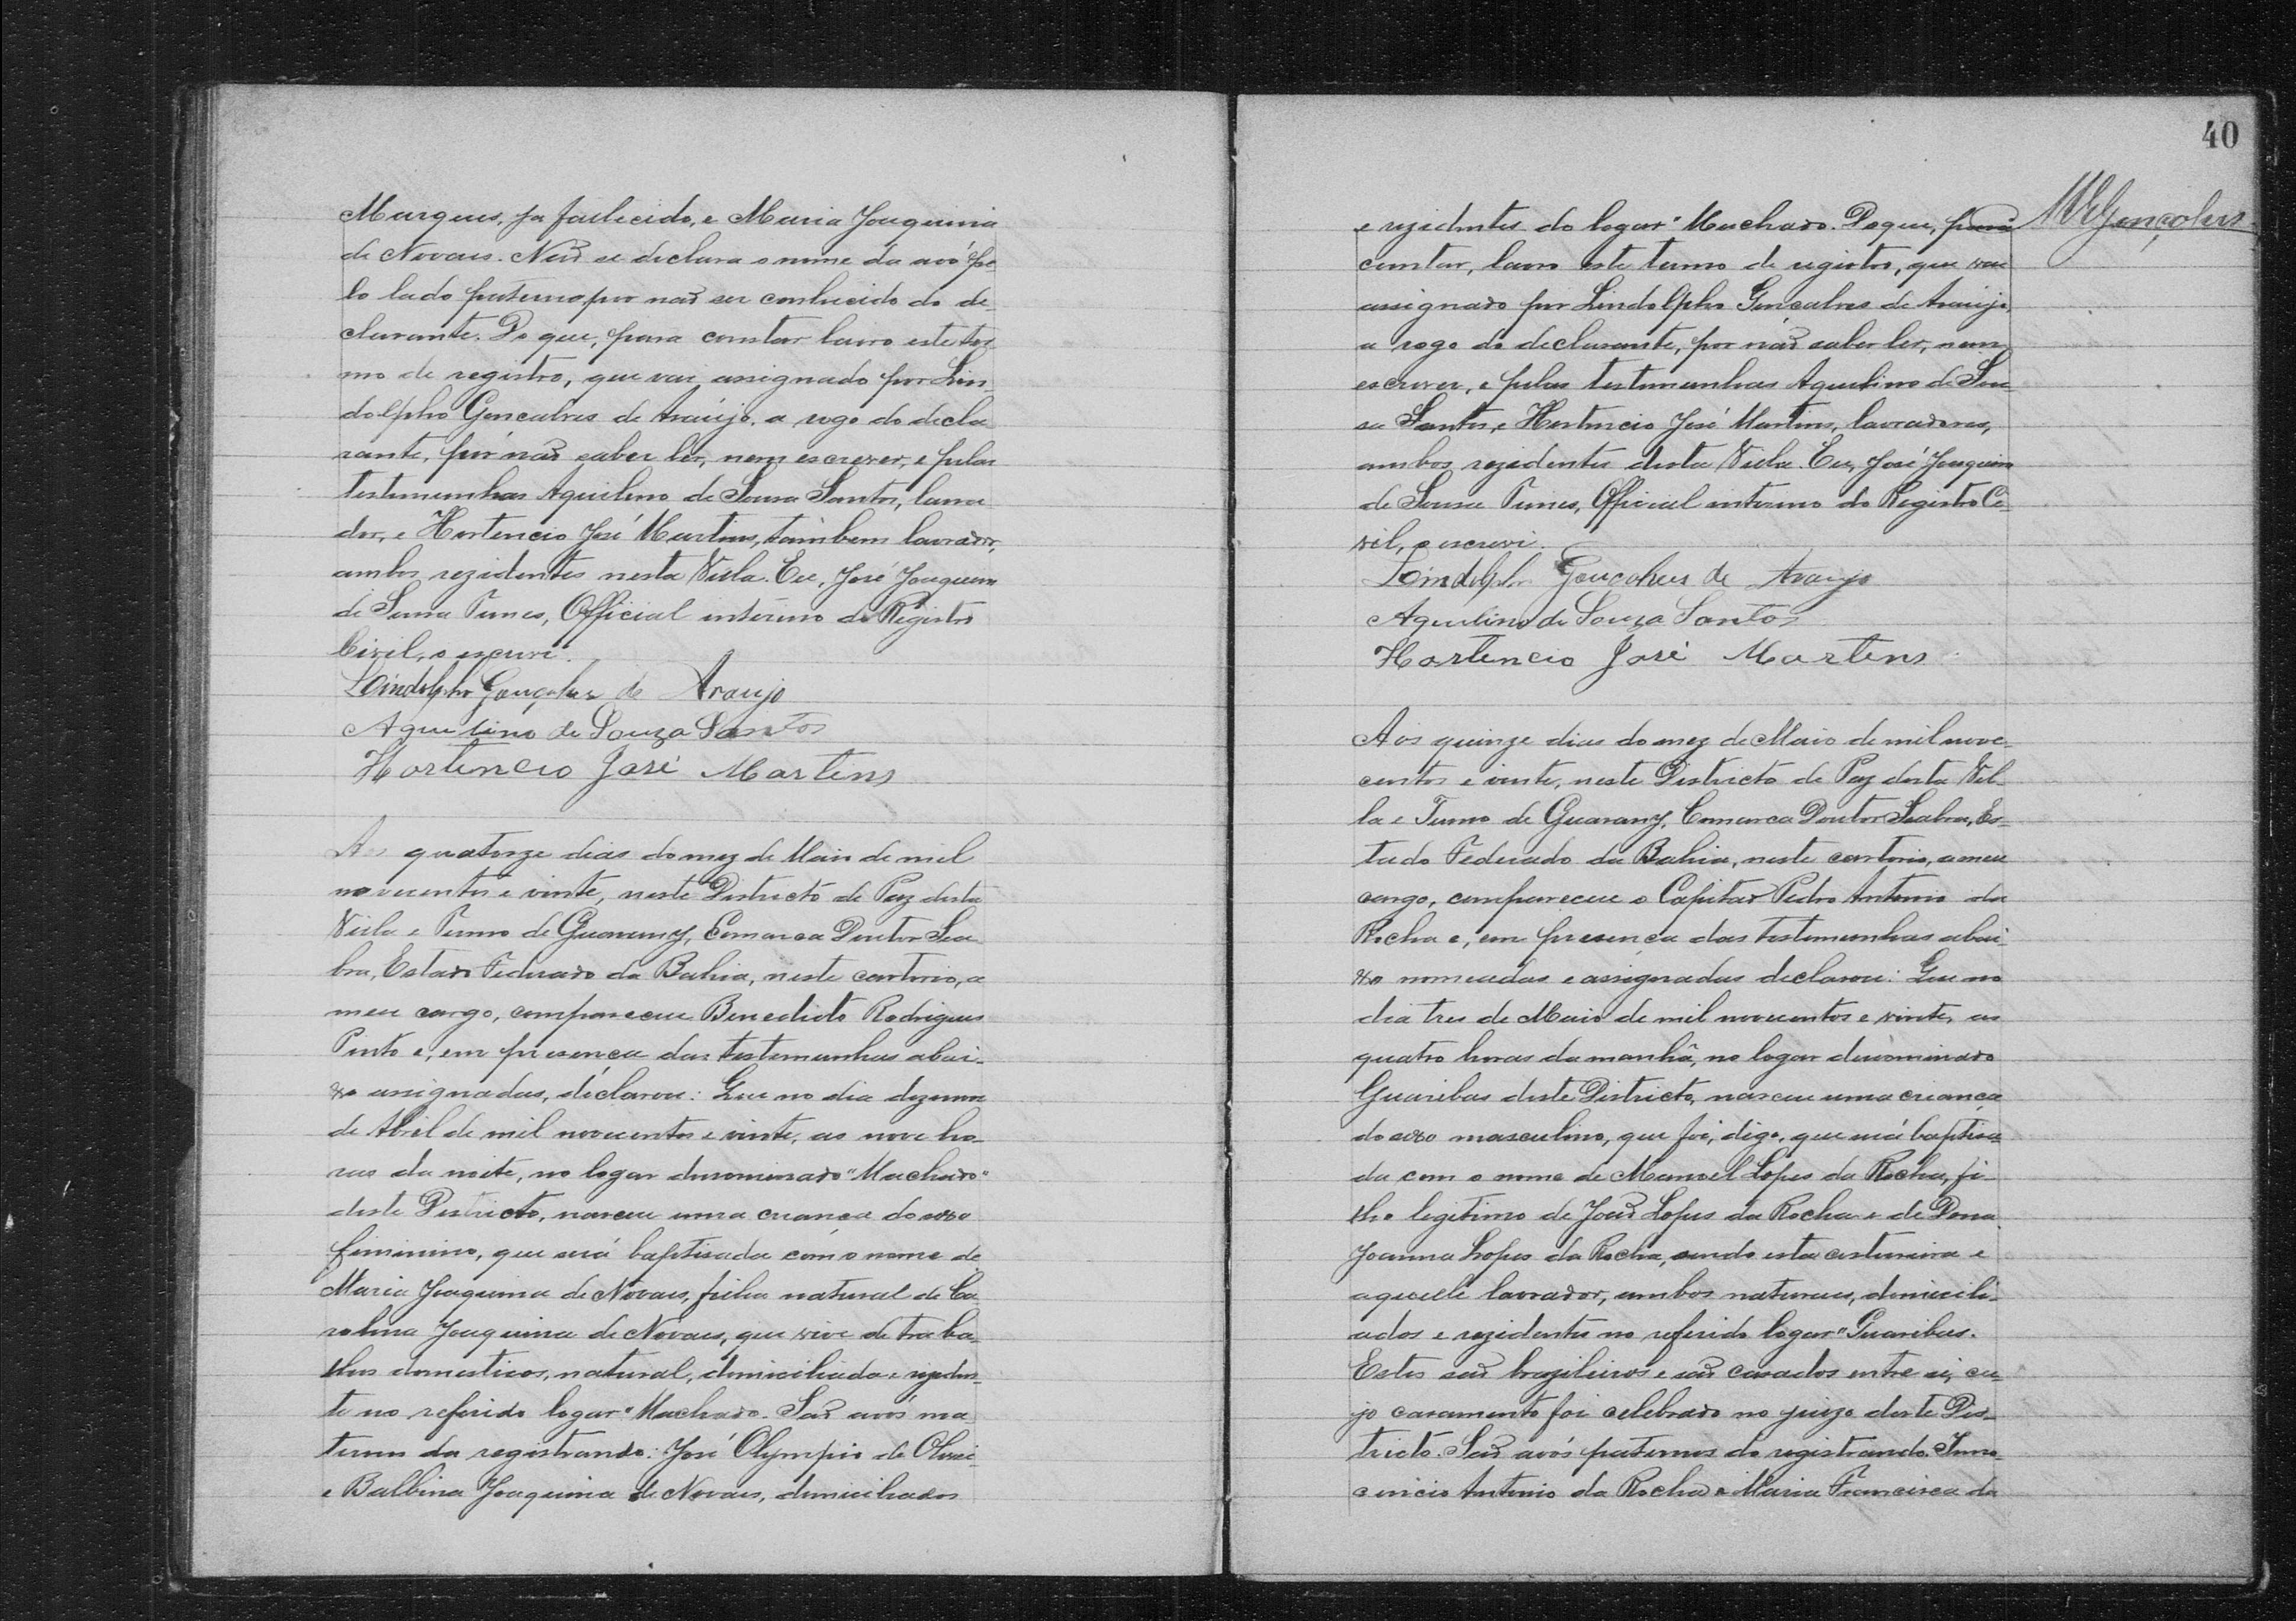 Marques, ja fallecido, e Maria Joaquina
de Novaes. Não se declara o nome da avó pe
lo lado paterno, por não ser conhecido do de-
clarante. Do que, para constar lavro este ter
mo de registro, que vai assignado por Lin
dolpho Goncalves de Araújo, a rogo do decla
rante, por não saber ler, nem escrever, e pelas
testemunhas Aquilino de Sousa Santos, lavra
dor, e Hortencio José Martins, tambem lavrador,
ambos rezidentes nesta Villa. Eu, José Joaquim
de Sousa Nunes, Official interino do Registro
Civil, o escrevi.
Lindolpho Gonçalves de Araujo
Aquilino de Souza Santos
Hortencio José Martins
Aos quatorze dias do mez de Maio de mil
novecentos e vinte, neste Districto de Paz desta
Villa e Termo de Guarany, Comarca Doutor Sea
bra, Estado Federado da Bahia, neste cartorio, a
meu cargo, compareceu Benedicto Rodrigues
Pinto e, em presença das testemunhas abai-
xo assignadas, declarou: Que no dia dezenove
de Abril de mil novecentos e vinte, as nove ho-
ras da noite, no logar denominado "Machado"
deste Districto, nasceu uma criança do sexo
feminino, que será baptisada com o nome de
Maria Joaquina de Novaes, filha natural de Ca
rolina Joaquina de Novaes, que vive de traba-
lhos domesticos, natural, domiciliada e reziden-
te no referido logar "Machado. São avós ma
ternos da registranda: José Olympio de Olivei-
e Balbina Joaquina de Novaes, domiciliados
40
e rezidentes do logar "Machado. Do que, para
constar, lavro este termo de registro, que vai
assignado por Lindolpho Goncalves de Araujo,
a rogo do declarante, por não saber ler, nem
escrever, e pelas testemunhas Aquilino de Sou
sa Santos, e Hortencio José Martins, lavradores,
ambos rezidentes desta Villa. Eu, José Joaquim
de Sousa Nunes, Official interino do Registro Ci-
vil, o escrevi.
Lindolpho Gonçalves de Araujo
Aquilino de Souza Santos
Hortencio José Martins
Aos quinze dias do mez de Maio de mil nove-
centos e vinte, neste Districto de Paz desta Vil-
la e Termo de Guarany, Comarca Doutor Seabra, Es-
tado Federado da Bahia, neste cartorio, a meu
cargo, compareceu o Capitão Pedro Antonio da
Rocha e, em presença das testemunhas abai-
xo nomeadas e assignadas declarou: Que no
dia tres de Maio de mil novecentos e vinte, as
quatro horas da manhã, no logar denominado
Guaribas deste Districto, nasceu uma criança
do sexo masculino, que foi, digo, que será baptisa-
da com o nome de Manoel Lopes da Rocha, fi-
lho legitimo de João Lopes da Rocha e de Dona
Joanna Lopes da Rocha, sendo esta costureira e
aquelle lavrador, ambos naturaes, domicili-
ados e rezidentes no referido logar "Guaribas.
Estes são brazileiros e são casados entre si, cu-
jo casamento foi celebrado no juizo deste Dis-
tricto. São avós paternos do registrando Inno
cencio Antonio da Rocha e Maria Francisca da